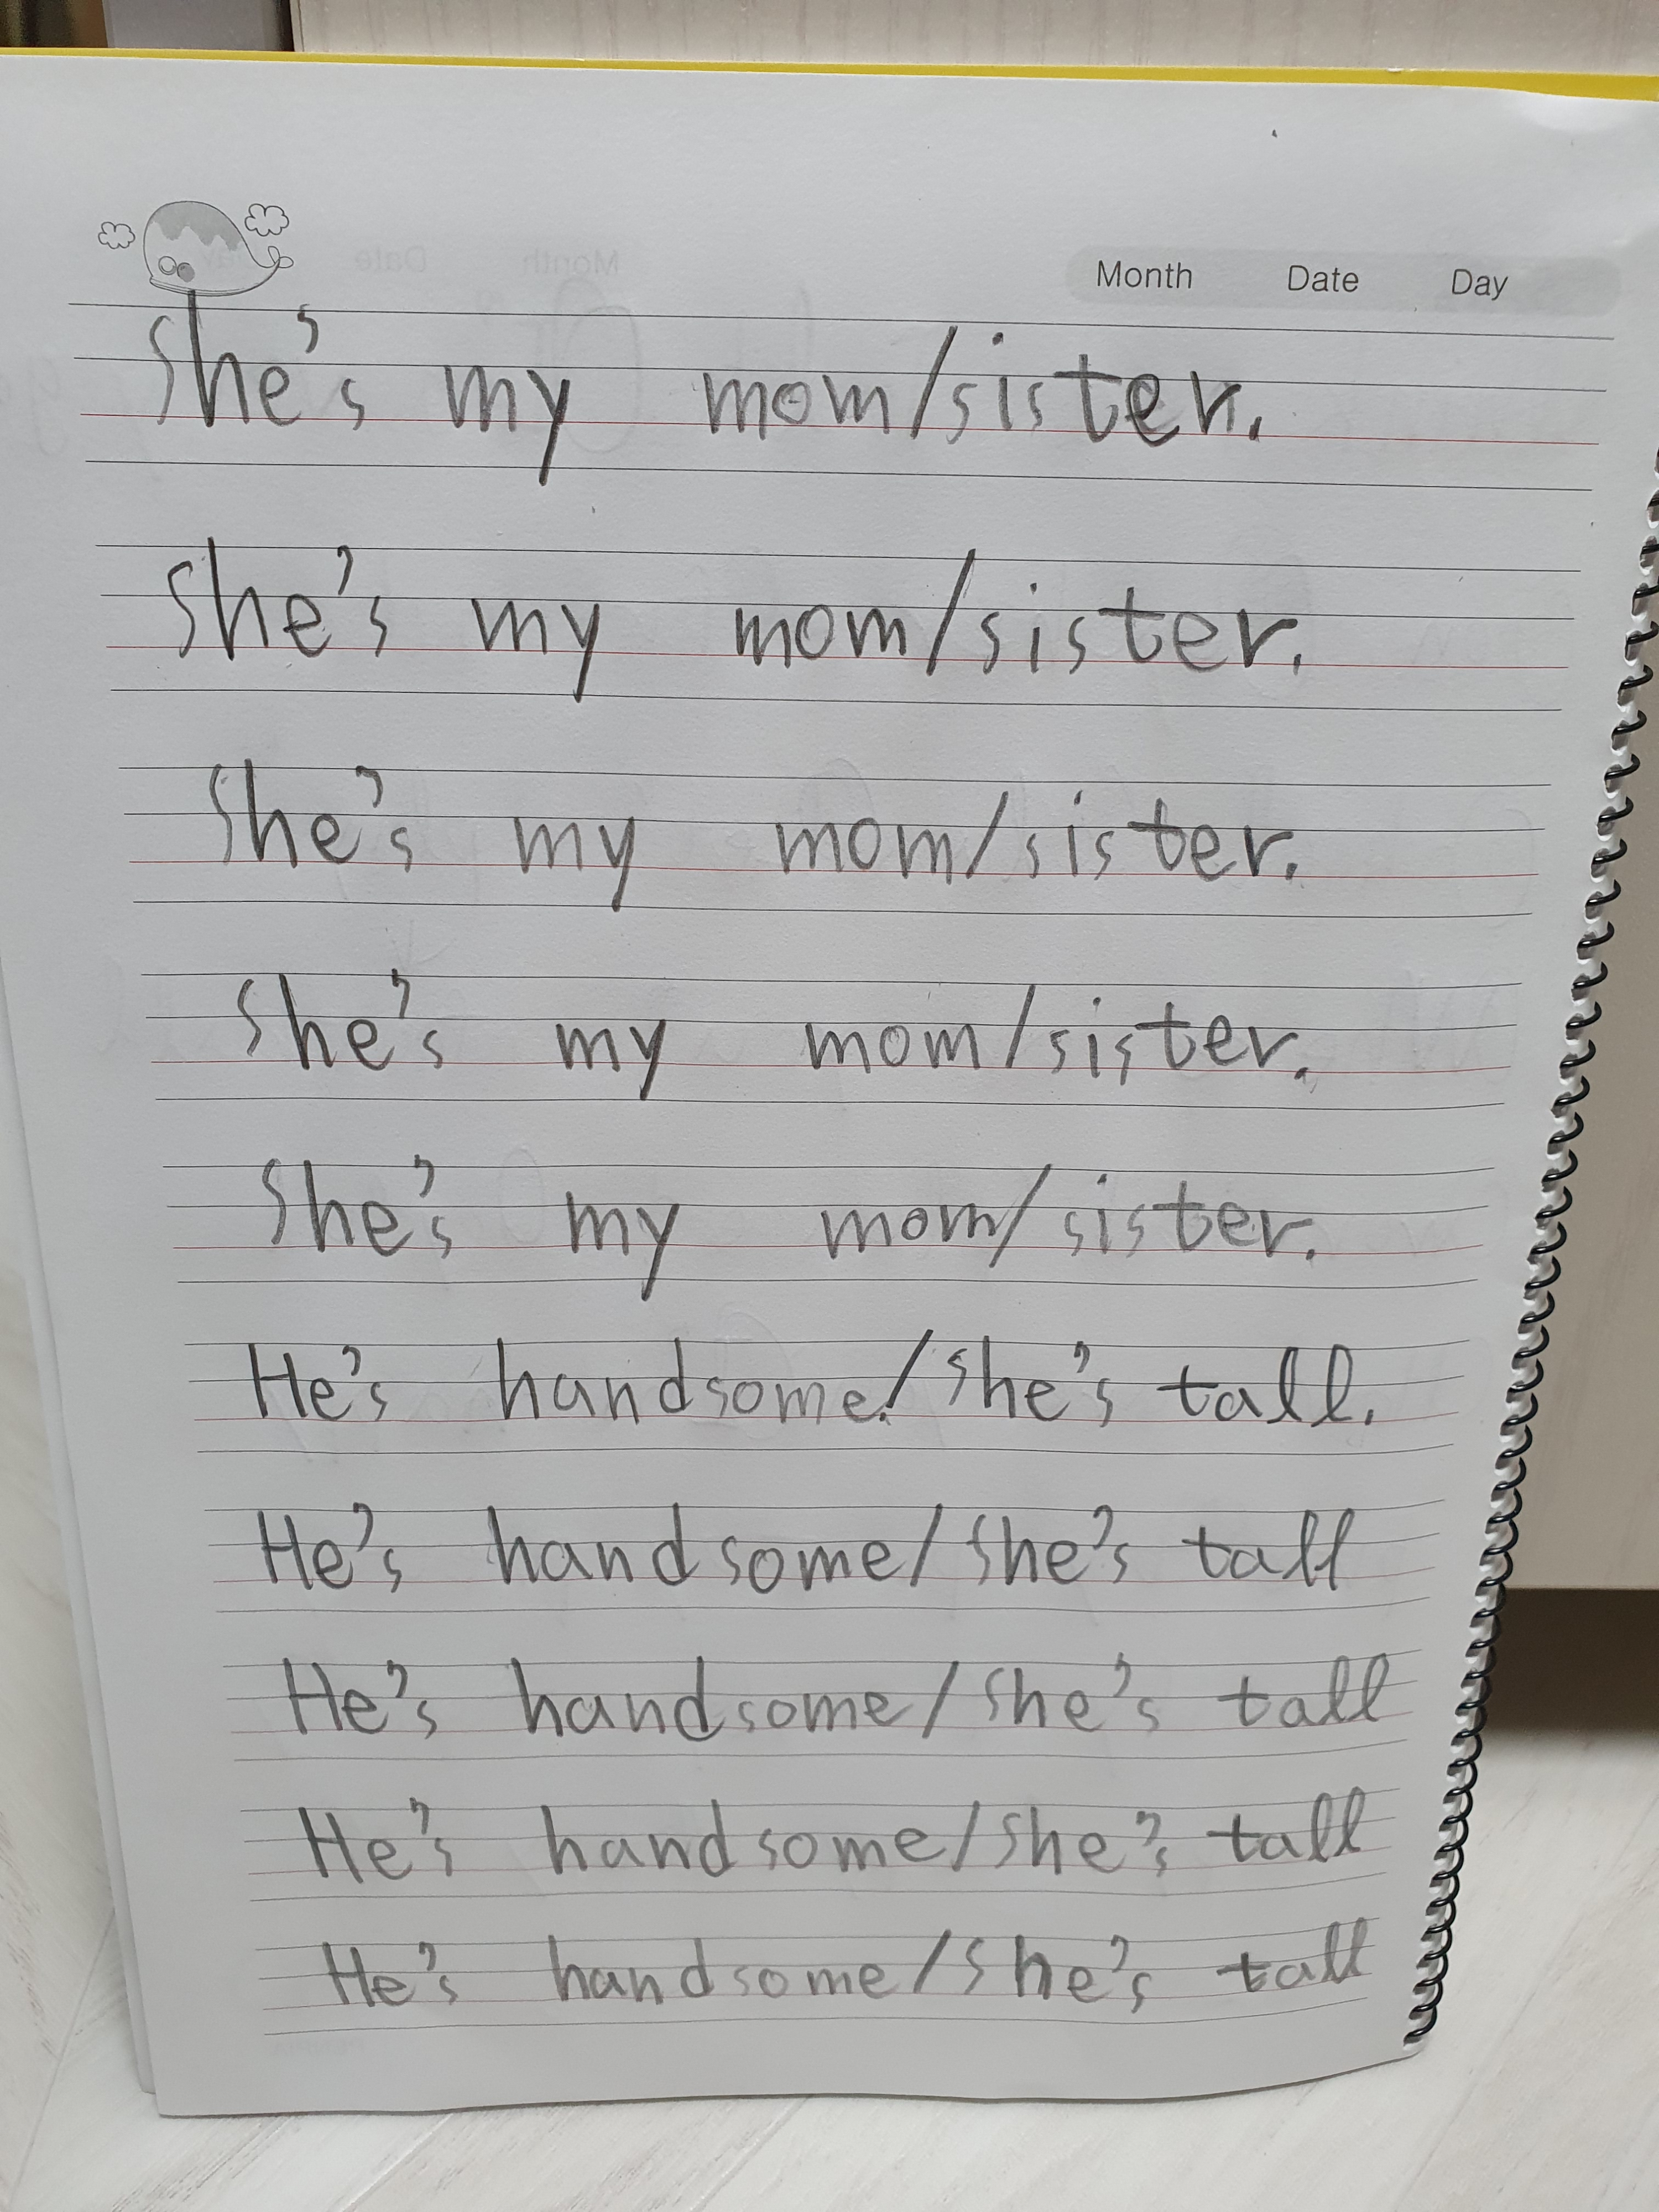 Month Date Day
She's my mom/sister.
She's my mom/sister.
She's my mom/sister.
She's my mom/sister.
She's my mom/sister.
He's handsome./She's tall.
He's handsome/She's tall
He's handsome/She's tall
He's handsome/She's tall
He's handsome/She's tall